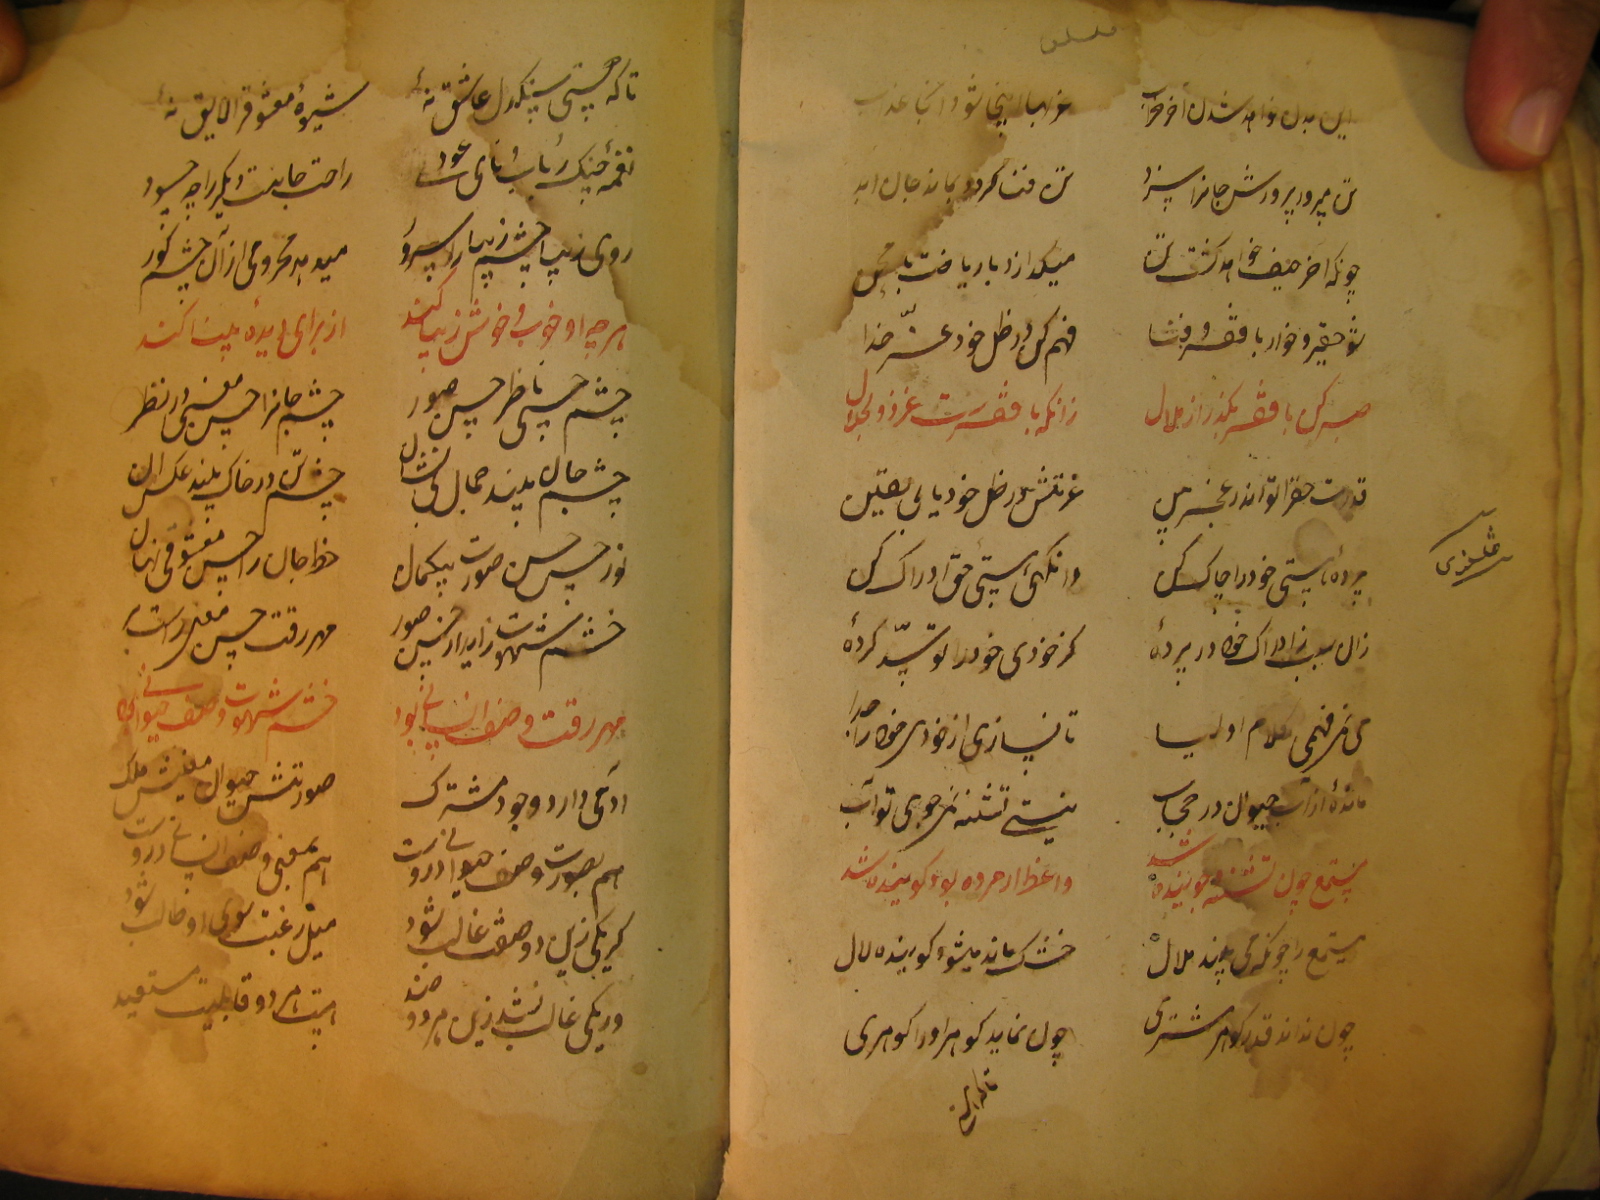 این بدن خواهد شدن آخر خراب
تن مپرور پرورش جانرا سزد تن فنا گردد بماند جان ابد
چونکه آخر حیف خواهد گشت تن میگداز با ریاضت
شو حقیر و خوار با فقر و فنا فهم کن در ظل خود عز خدا
صبر کن با فقر بگذر از ملال زانکه با فقرست عز ذو الجلال
قدرت حق را تو اندر عجز بین عزتش در ظل خود یابی یقین
پرده هستی خود را چاک کن وانگهی هستی حق ادراک کن
زان سبب ز ادراک خود در پرده کز خودی خود را تو سد کرده
می نفهمی کلام اولیا تا نسازی از خودی خود را جدا
مانده از آب حیوان در حجاب نیستی تشنه نمی جویی تو آب
مستمع چون تشنه و جوینده شد واعظ ار مرده بود گوینده شد
مستمع را چونکه می بیند ملال خشک ماند میشود گوینده لال
چون نداند قدر گوهر مشتری چون نماید گوهر او را گوهری
تا که هستی سنگدل عاشق نه شیوه معشوق را لایق نه
نغمه چنگ و رباب و نای و عود راحت جانست دیگر را چه سود
روی زیبا چشم زیبا را سرور میدهد محرومی از آن چشم کور
هر چه او خوب و خوش زیبا کنند از برای دیده بینا کنند
چشم حسی ناظر حسن صور چشم جانرا حسن معنی در نظر
چشم جان بیند جمال بی نشان چشم تن در خاک بیند عکس آن
نور حس حسن صورت بیگمان حظ جان را حسن معشوقی نهان
خشم شهوت زاید از حسن صور مهر رقت حسن معنی راست بر
مهر رقت وصف انسانی بود خشم شهوت وصف حیوانی بود
آدمی دارد وجود مشترک صورتش حیوان معنیش ملک
هم بصورت وصف حیوانی دروست هم بمعنی وصف انسانی دروست
گر یکی زین دو صفت غالب شود میل رغبت سوی او طالب شود
ور یکی غالب نشد زین هر دو ضد هست هر دو قابلیت مستعد